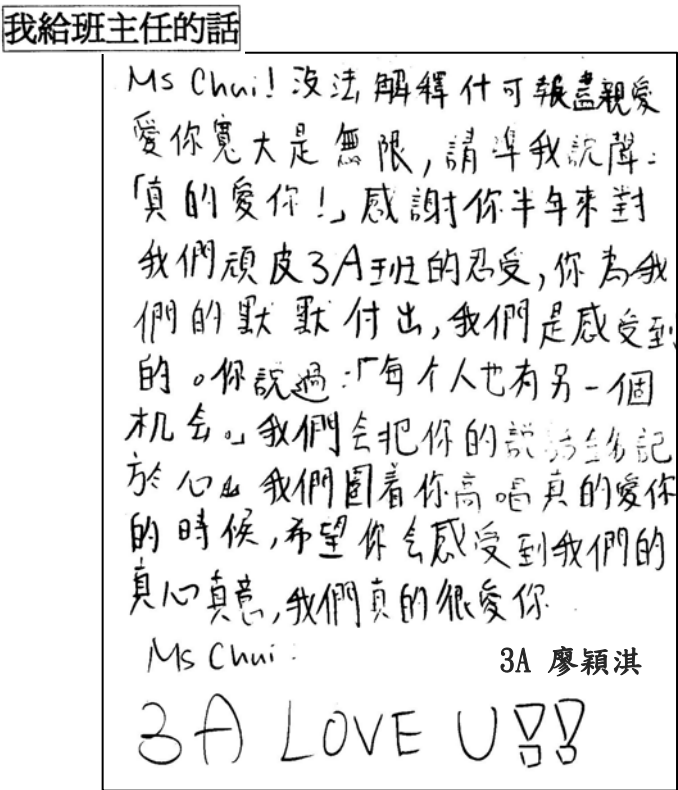 我給班主任的話
Ms Chui! 没法解釋什可報盡親愛
愛你寬大是無限,請準我說聲:
「真的愛你!」感謝你半年來對
我們頑皮3A班的忍受,你為我
們的默默付出,我們是感受到
的。你說過:「每个人也有另一個
机会。」我們会把你的說話銘記
於心。我們圍着你高唱真的愛你
的時候,希望你会感受到我們的
真心真意,我們真的很愛你
Ms Chui:
3A 廖穎淇
3A LOVE U!!